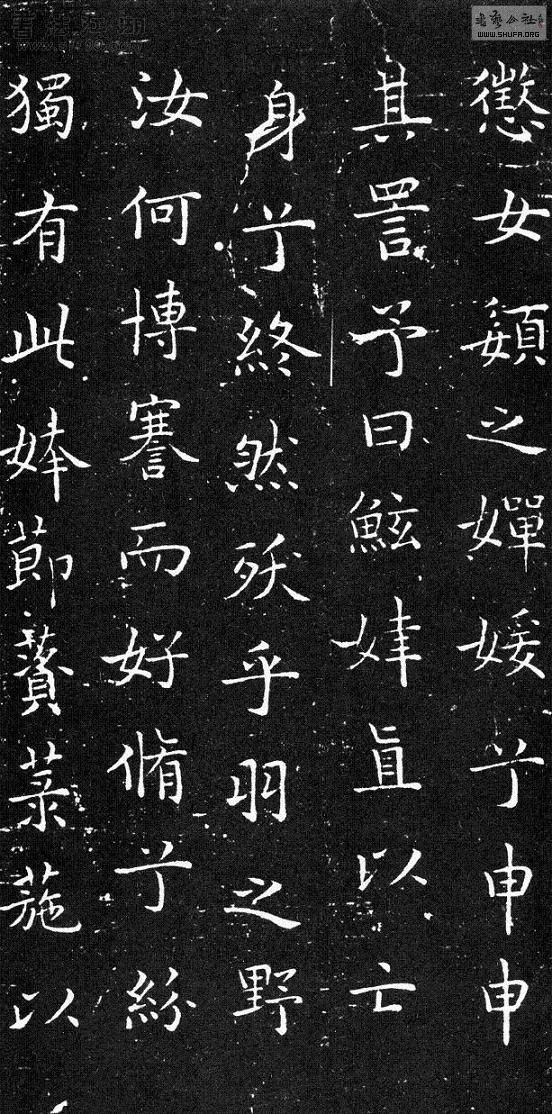 懲女嬃之嬋媛兮申申
其詈予曰鮌婞直以亡
身兮終然殀乎羽之野
汝何博謇而好脩兮紛
獨有此姱節薋菉葹以
WWW.SHUFA.ORG